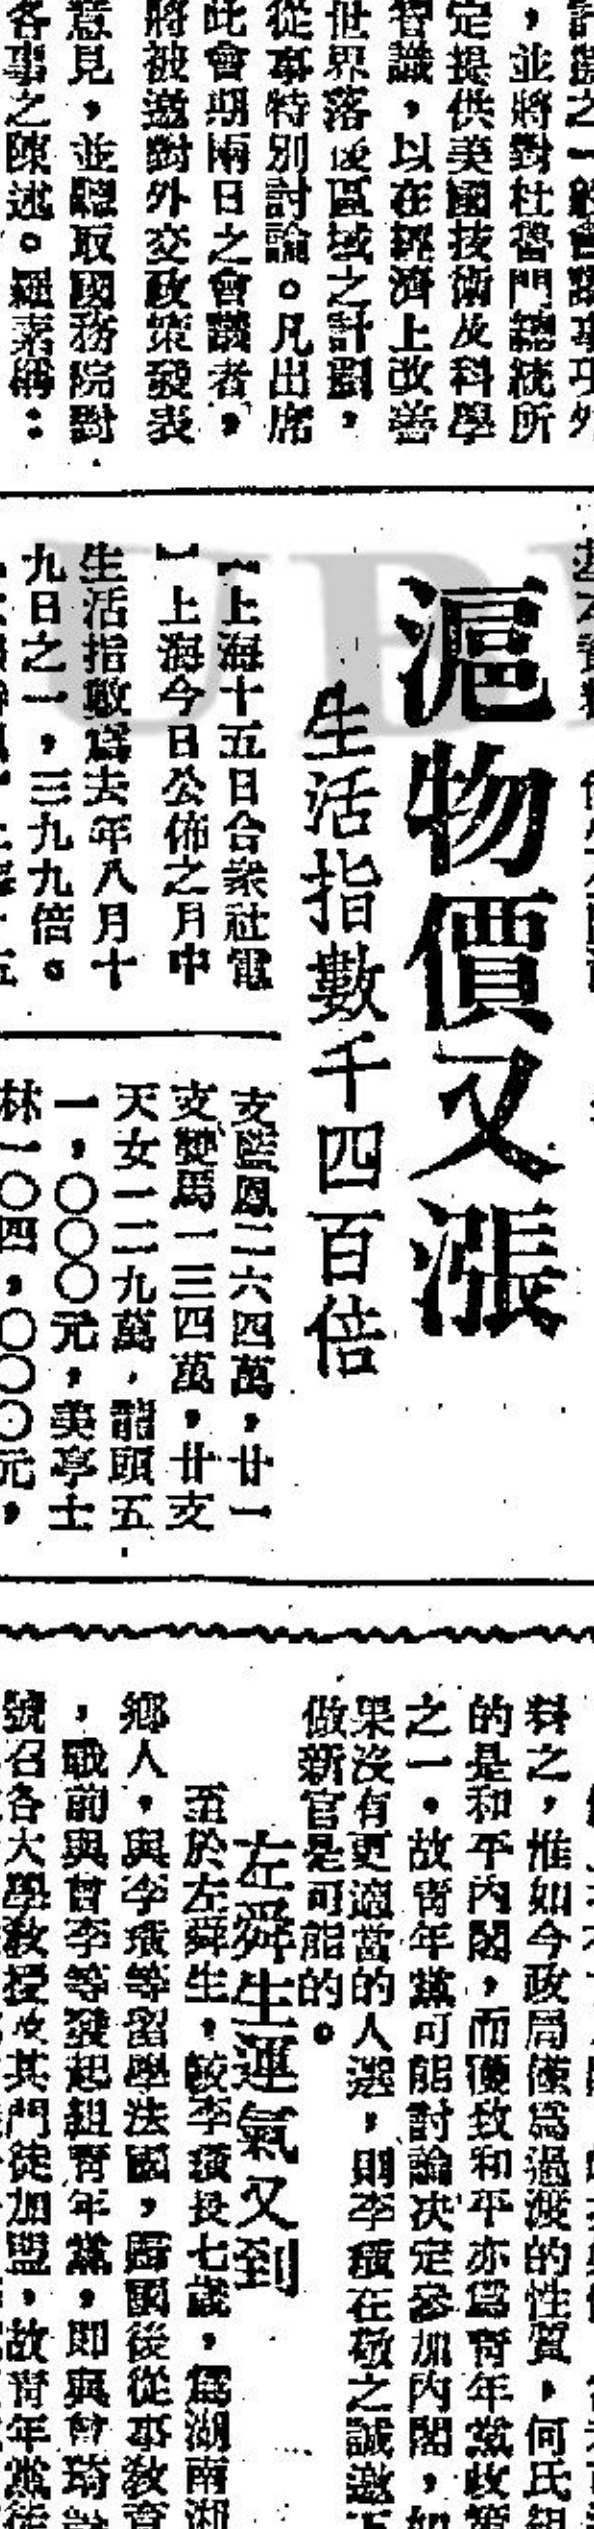 ，並將對杜魯門總統所
定提供美國技術及科學
智識，以在經濟上改善
世界落後區域之計劃，
從事特別討論。凡出席
此會期兩日之會議者，
將被邀對外交政策發表
意見，並聽取國務院對
各事之陳述。羅素稱：
滬物價又漲
生活指數千四百倍
【上海十五日合衆社電
】上海今日公佈之月中
生活指數爲去年八月十
九日之一，三九九倍。
支藍鳳二六四萬，廿一
支雙馬一三四萬，廿支
天女一二九萬，龍頭五
一，〇〇〇元，美亭士
林一〇四，〇〇〇元，
料之，惟如今政局僅爲過渡的性質，何氏組
的是和平內閣，而獲致和平亦爲青年黨政策
之一。故青年黨可能討論决定參加內閣，如
果沒有更適當的人選，則李璜在敬之誠邀下
做新官是可能的。
左舜生運氣又到
至於左舜生，較李璜長七歲，爲湖南湘
鄉人，與李璜等留學法國，歸國後從事教育
，戰前與曾李等發起組青年黨，即與曾琦
號召各大學教授及其門徒加盟，故青年黨徒
UB